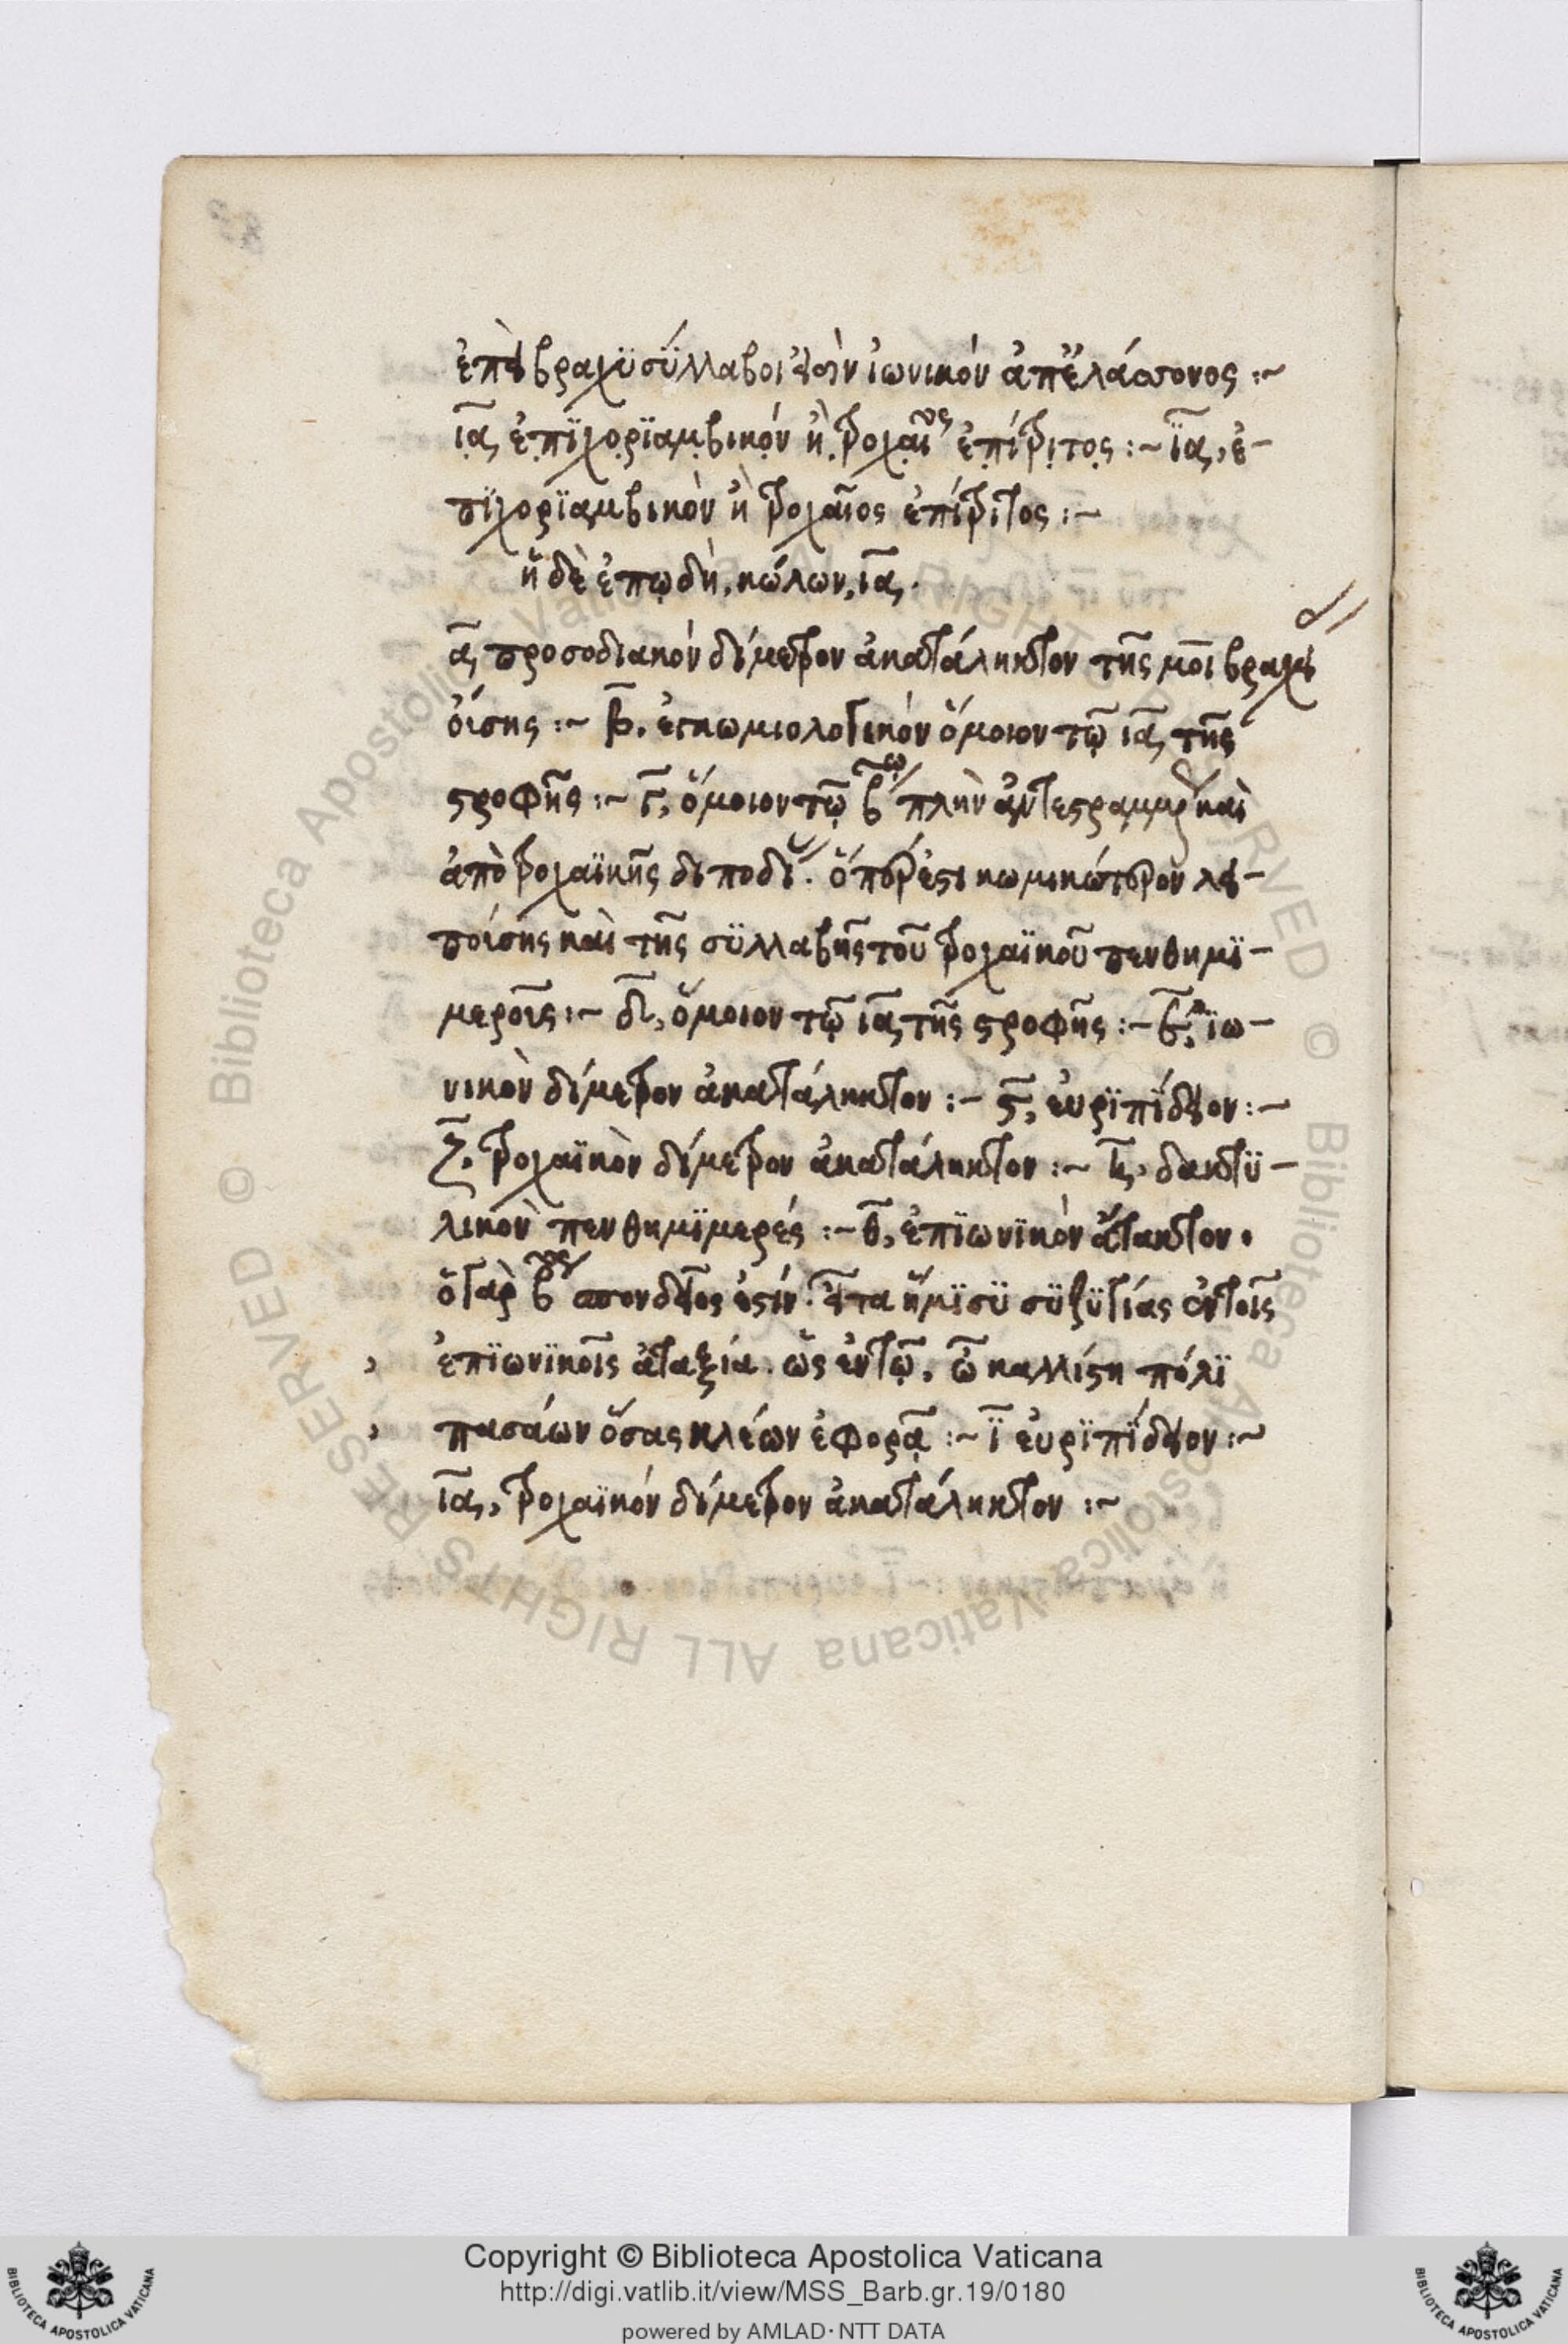 ἐπεὶ βραχϋσΰλλαβοι εἰσὶν ἰωνικόν ἀπ' ἐλάσσονος :~
ια, ἐπϊχορϊαμβικόν ἢ τροχαῖος ἐπίτριτος :~ ϊα, ἐ-
πϊχορϊαμβικὸν ἢ τροχαῖος ἐπίτριτος :~
ἡ δὲ ἐπῳδὴ, κώλων, ια.
α, προσοδιακὸν δίμετρον ἀκατάληκτον τῆς μοι βραχεί
οἴσης :~ β. ἐγκωμιολογικόν ὅμοιον τῷ ια, τῆς
στροφῆς :~ γ, ὅμοιον τῷ βῳ πλὴν καὶ
ἀπὸ τροχαϊκῆς διποδί. ὅπερ ἐστι κωμικώτερον λει-
ποίσης καὶ τῆς σϋλλαβῆς τοῦ τροχαϊκοῦ πενθημϊ-
μεροῖς :~ δ, ὅμοιον τῷ ια, τῆς στροφῆς :~ ϊω-
νικὸν δίμετρον ἀκατάληκτον :~ ϛ, εὐρϊπΐδειον :~
ζ, τροχαϊκὸν δίμετρον ἀκατάληκτον :~ η, δακτϋ-
λικὸν πενθημϊμερές :~ θ, ἐπϊωνϊκὸν ἄτακτον.
ὁ γὰρ βος σπονδεῖος ἐστίν. εἶτα ἥμϊσϋ σϋζϋγίας ἐν τοῖς
ἐπϊωνϊκοῖς ἀταξία. ὡς ἐν τῷ, ὦ καλλίστη πόλϊ
πασάων ὅσας κλέων ἐφορᾷ :~ ϊ εὐρϊπΐδειον :~
ια, τροχαϊκόν δίμετρον ἀκατάληκτον :~
Copyright © Biblioteca Apostolica Vaticana
http://digi.vatlib.it/view/MSS_Barb.gr.19/0180
powered by AMLAD·NTT DATA